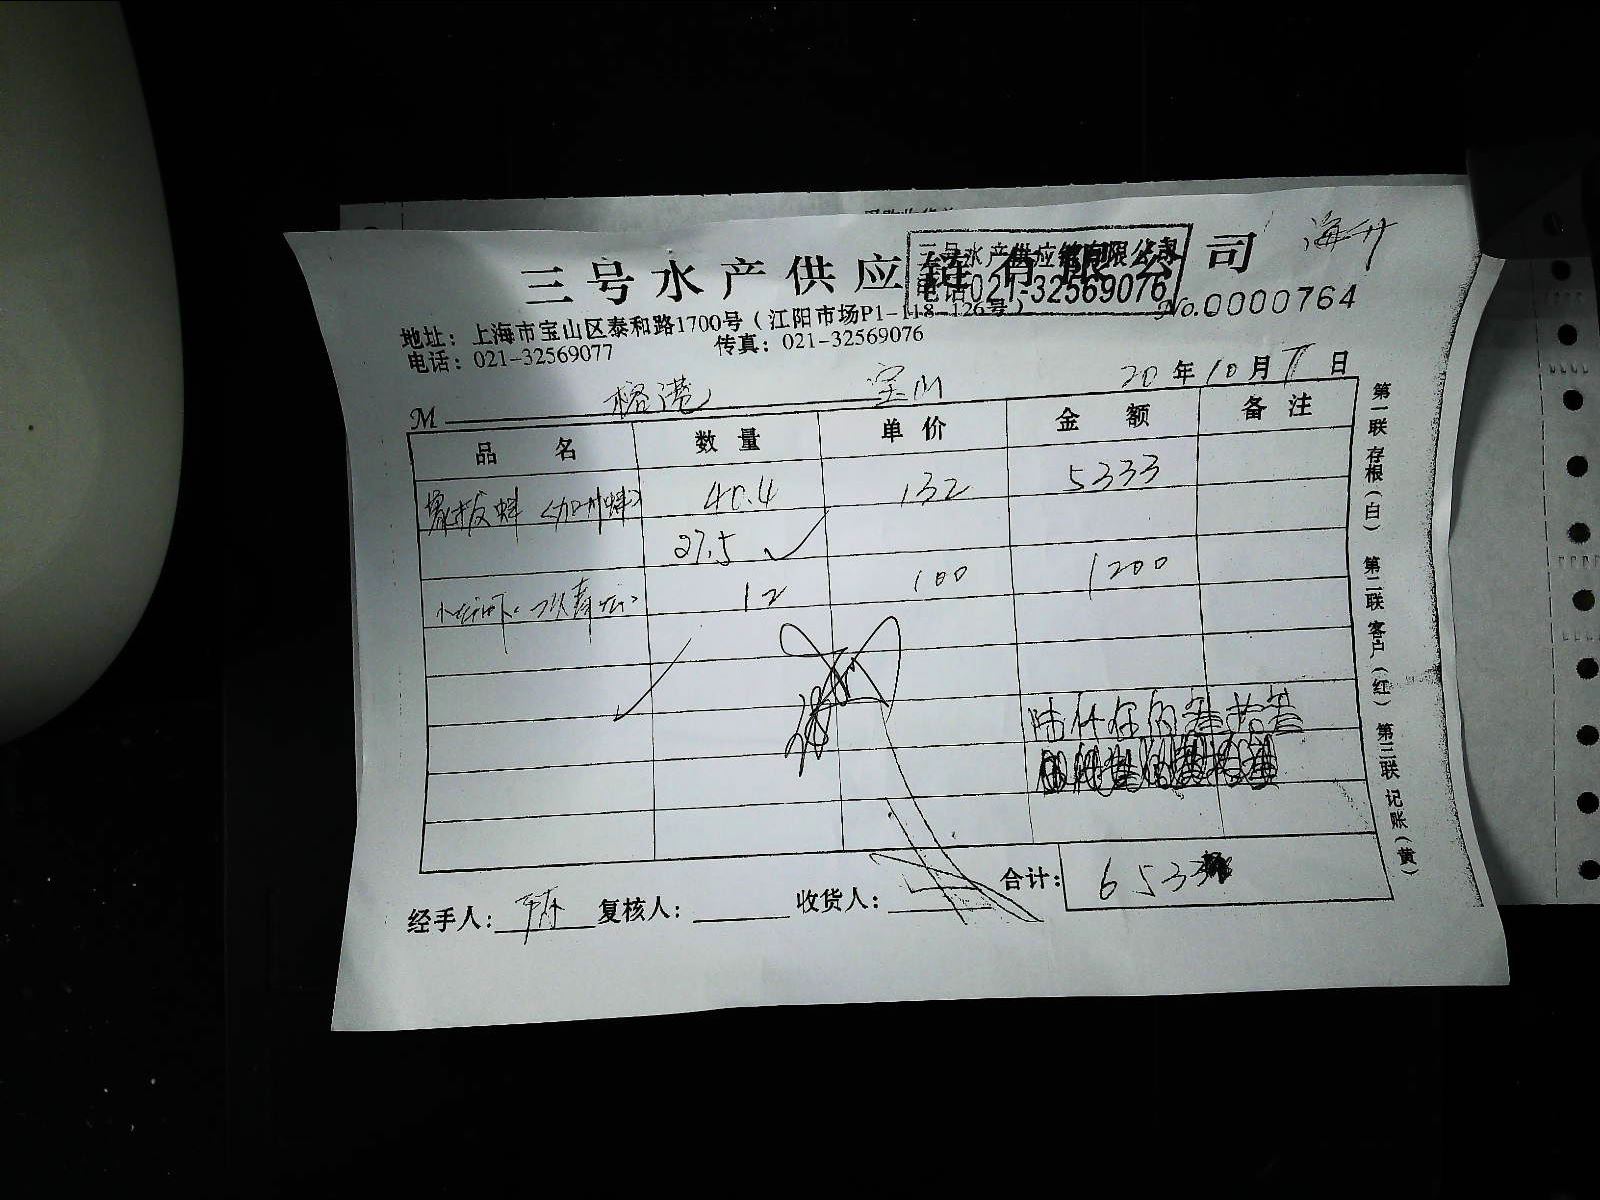 海升
三号水产供应链有限公司
三号水产供应链有限公司
电话021-32569076
No.0000764
地址：上海市宝山区泰和路1700号（江阳市场P1-118-126号）
电话：021-32569077 传真：021-32569076
20年10月 日
M 榕港 宝山
品 名 数 量 单 价 金 额 备 注
象拔蚌（加州蚌） 40.4 132 5333
27.5
12 100 1200
陆仟伍佰
合计：6533
经手人： 复核人： 收货人：
第一联 存根（白） 第二联 客户（红） 第三联 记账（黄）